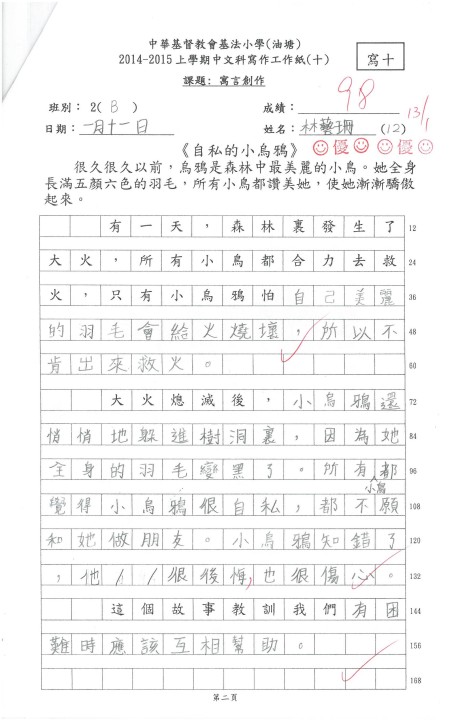 中華基督教會基法小學(油塘)
2014-2015上學期中文科寫作工作紙(十)
寫十
課題: 寓言創作
班別: 2( B )
成績: 98
13/1
日期: 一月十一日
姓名: 林藝珊 (12)
《自私的小烏鴉》
優 優
很久很久以前，烏鴉是森林中最美麗的小鳥。她全身
長滿五顏六色的羽毛，所有小鳥都讚美她，使她漸漸驕傲
起來。
有一天，森林裏發生了 12
大火，所有小鳥都合力去救 24
火，只有小烏鴉怕自己美麗 36
的羽毛會給火燒壞，所以不 48
肯出來救火。 60
大火熄滅後，小烏鴉還 72
悄悄地躲進樹洞裏，因為她 84
全身的羽毛變黑了。所有小鳥都 96
覺得小烏鴉很自私，都不願 108
和她做朋友。小烏鴉知錯了 120
，他很後悔，也很傷心。 132
這個故事教訓我們有困 144
難時應該互相幫助。 156
168
第二頁